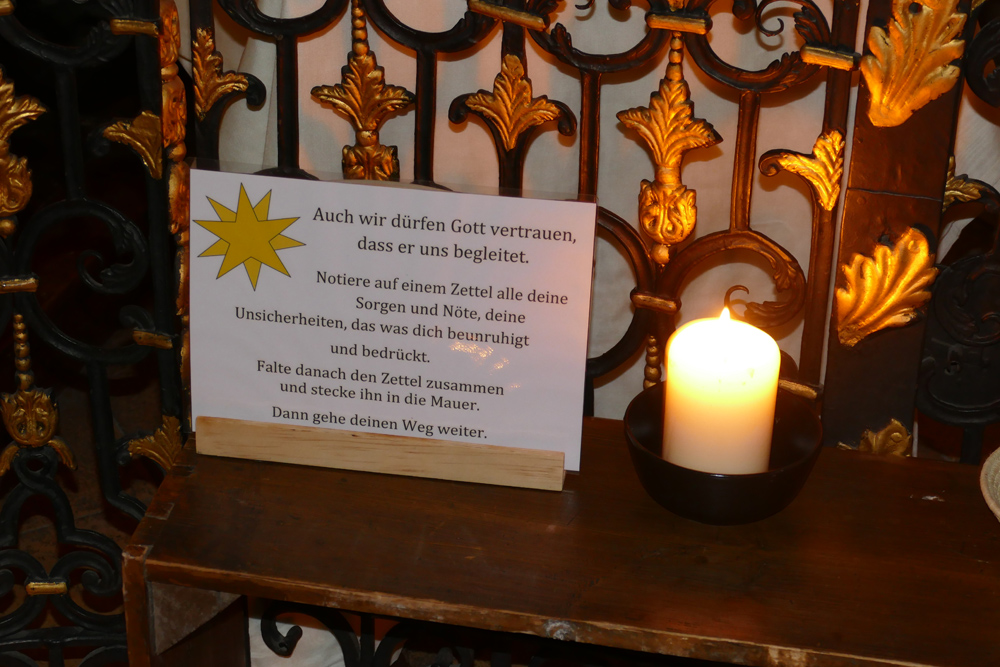 Auch wir dürfen Gott vertrauen,
dass er uns begleitet.
Notiere auf einem Zettel alle deine
Sorgen und Nöte, deine
Unsicherheiten, das was dich beunruhigt
und bedrückt.
Falte danach den Zettel zusammen
und stecke ihn in die Mauer.
Dann gehe deinen Weg weiter.